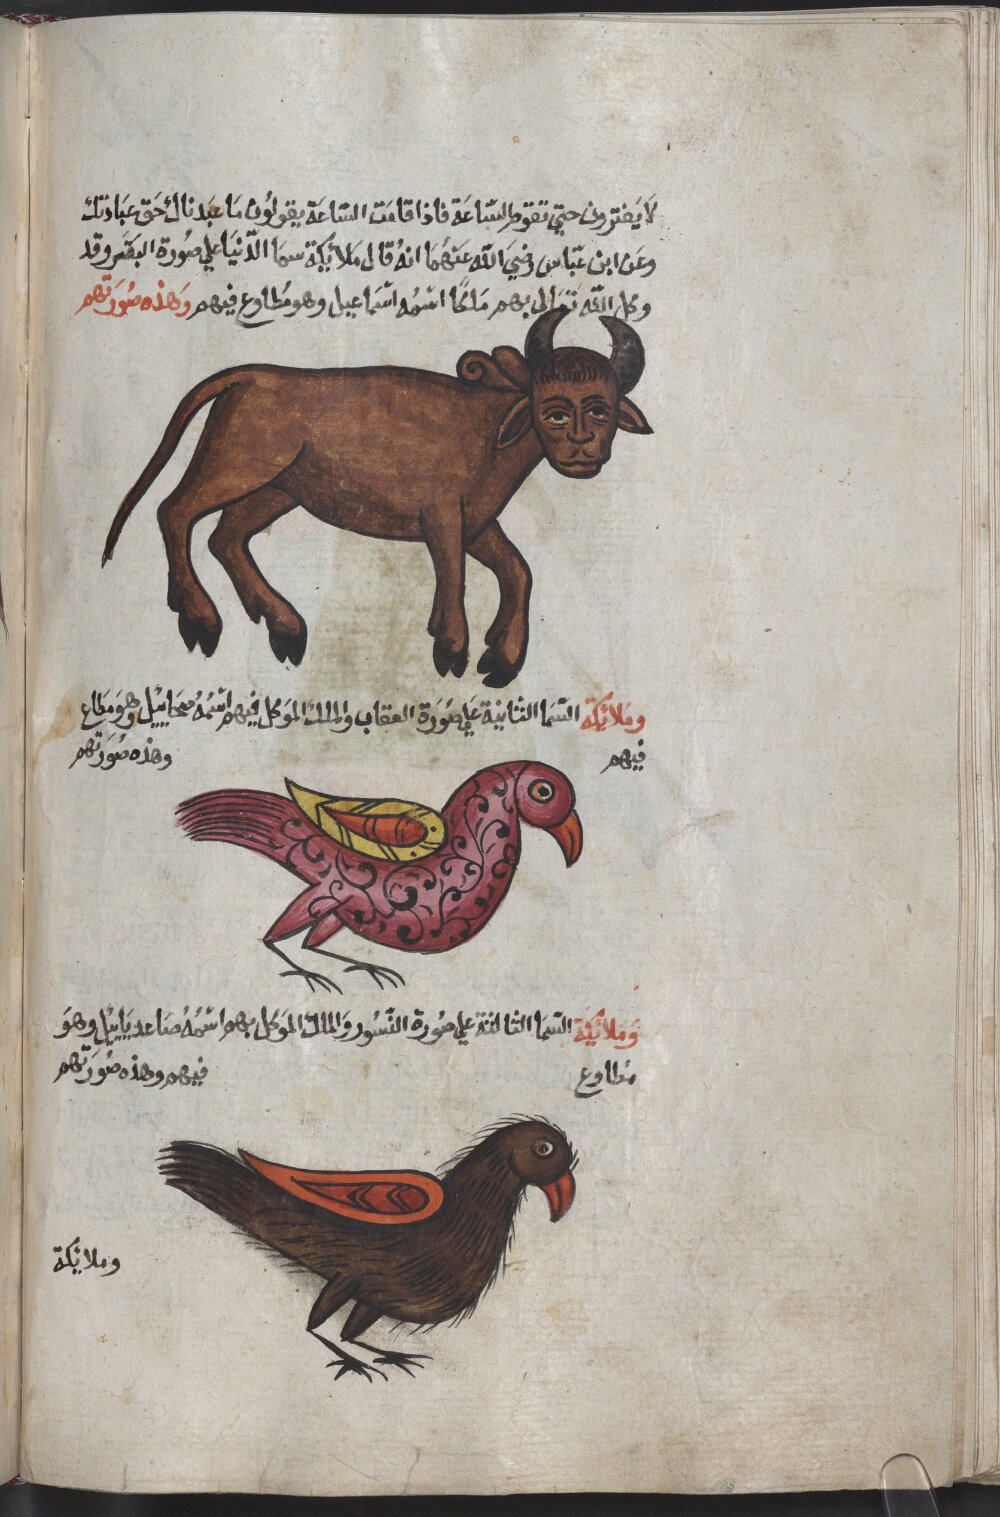 لا يفترون حتي تقوم الساعة فاذا قامت الساعة يقولون ما عبدناك حق عبادتك
وعن ابن عباس رضي الله عنهما انه قال ملائكة سما الدنيا علي صورة البقر وقد
وكل الله تعالى بهم ملكا اسمه اسماعيل وهو مطاوع فيهم وهذه صورتهم
وملائكة السما الثانية علي صورة العقاب والملك الموكل فيهم اسمه ميخاييل وهو مطاع
فيهم وهذه صورتهم
وملائكة السما الثالثة علي صورة النسور والملك الموكل بهم اسمه صاعدياييل وهو
مطاوع فيهم وهذه صورتهم
وملائكة